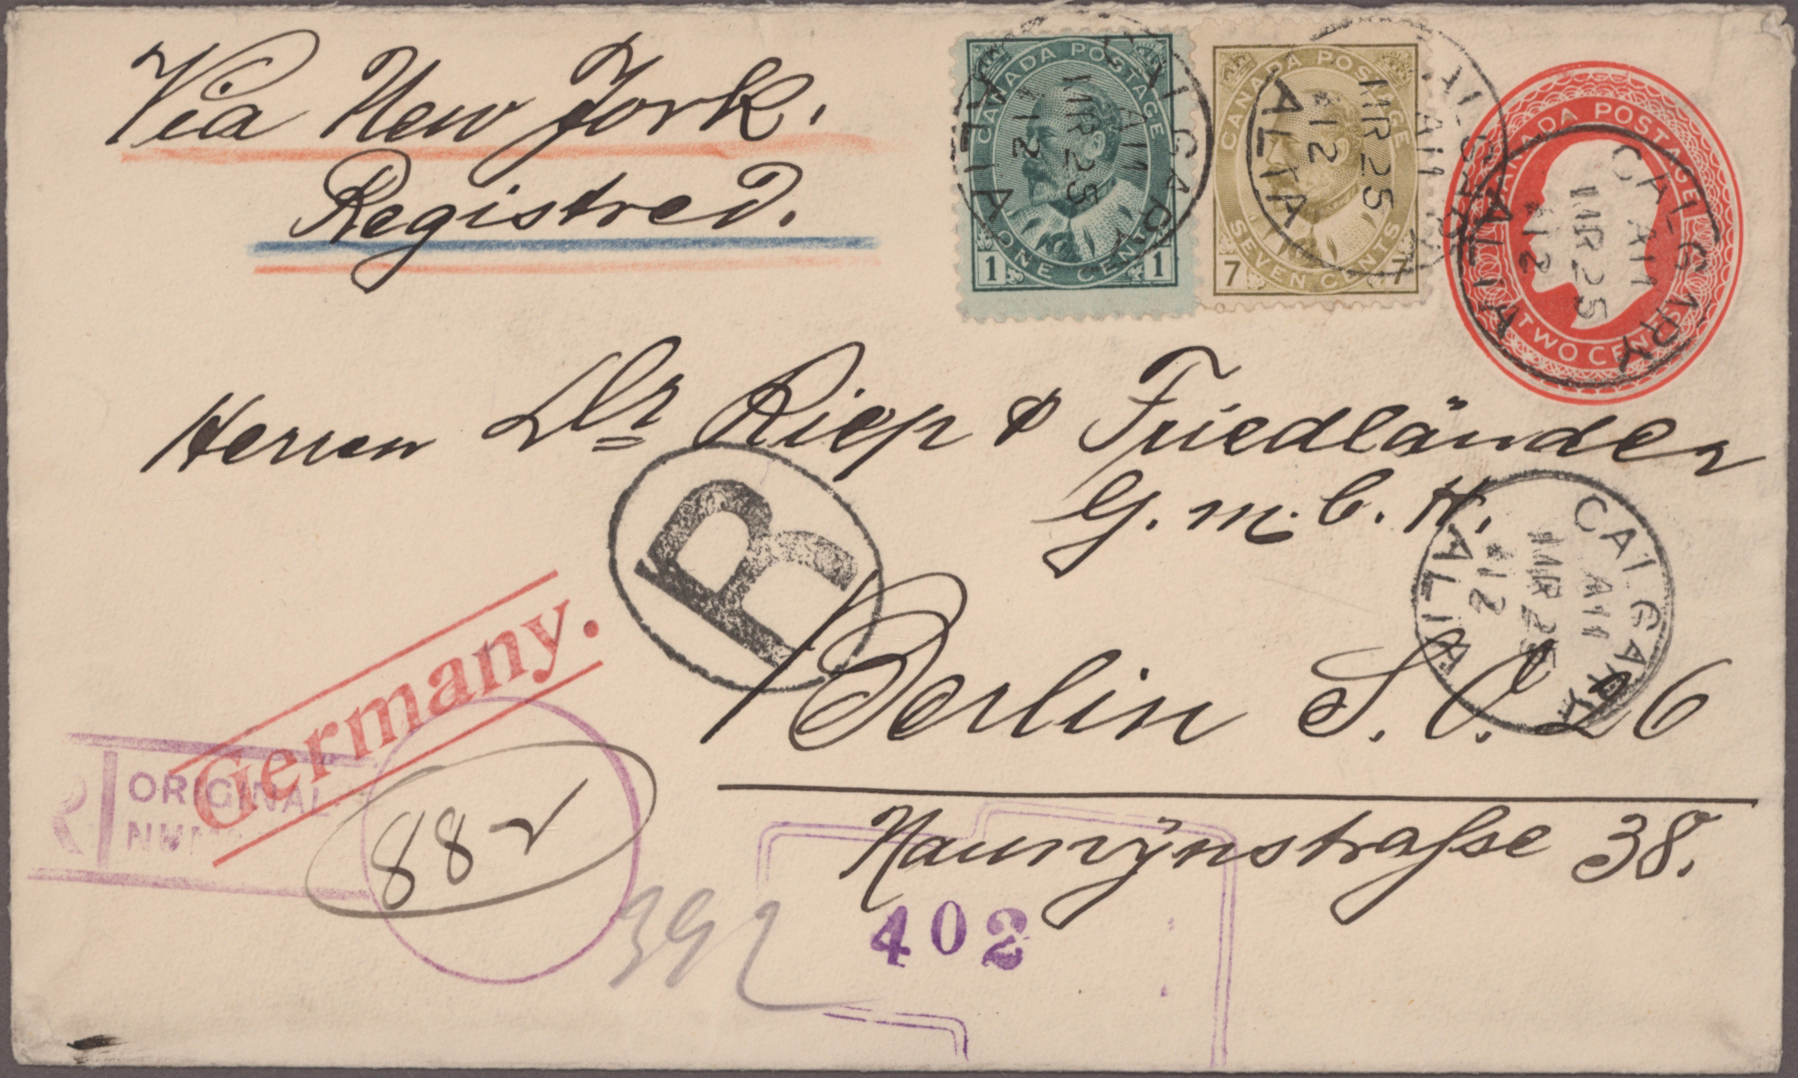 Via New York.
Registred.
CANADA POSTAGE
1 ONE CENT 1
CANADA POSTAGE
7 SEVEN CENTS 7
CANADA POSTAGE
TWO CENTS
CALGARY
AM
MR 25
12
ALTA
CALGARY
AM
MR 25
12
ALTA
CALGARY
AM
MR 25
12
ALTA
Herren Dr Riep & Friedländer
G.m.b.H.
CALGARY
AM
MR 25
12
ALTA
R
Berlin S.O. 26
Germany.
Naunÿnstrasse 38.
R ORIGINAL
882
392
402